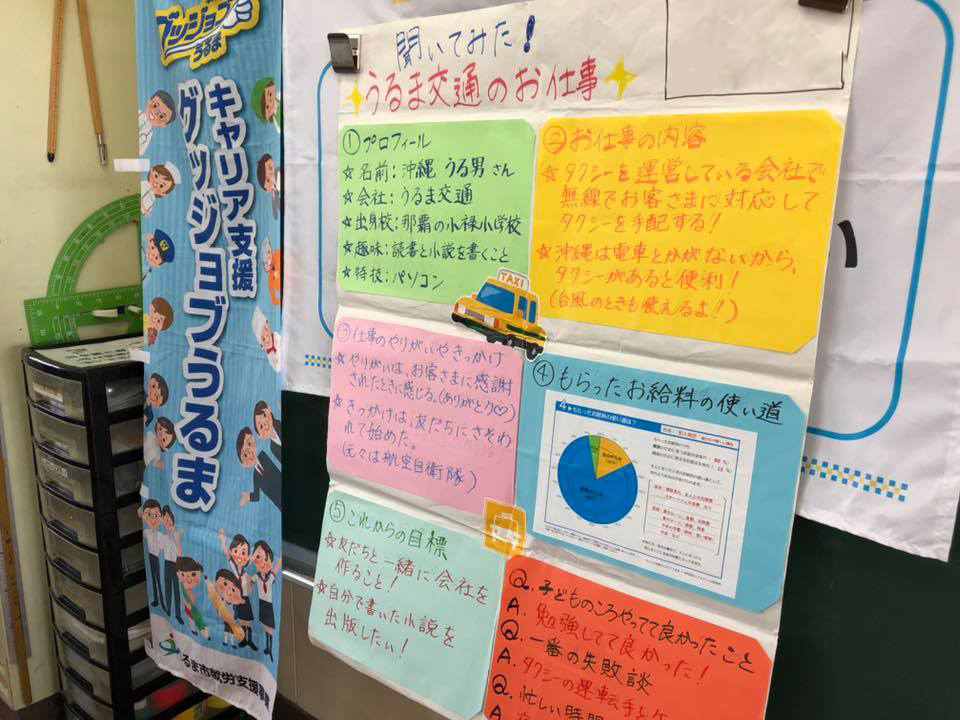 グッジョブ
うるま
キャリア支援
グッジョブうるま
るま市就労支援事
聞いてみた!
うるま交通のお仕事
① プロフィール
☆ 名前:沖縄 うる男 さん
☆ 会社:うるま交通
☆ 出身校:那覇の小禄小学校
☆ 趣味:読書と小説を書くこと
☆ 特技:パソコン
② お仕事の内容
☆ タクシーを運営している会社で
無線でお客さまに対応して
タクシーを手配する!
☆ 沖縄は電車とかがないから、
タクシーがあると便利!
(台風のときも使えるよ!)
TAXI
③ 仕事のやりがいやきっかけ
☆ やりがいは、お客さまに感謝
されたときに感じる。(ありがとう♡)
☆ きっかけは、友だちにさそわ
れて始めた。
(元々は航空自衛隊)
④ もらったお給料の使い道
4 ▶もらったお給料の使い道は?
⑤ これからの目標
☆ 友だちと一緒に会社を
作ること!
☆ 自分で書いた小説を
出版したい!
Q. 子どものころやってて良かったこと
A. 勉強してて良かった!
Q. 一番の失敗談
A. タクシーの運転手と
Q. 忙しい時間
A.